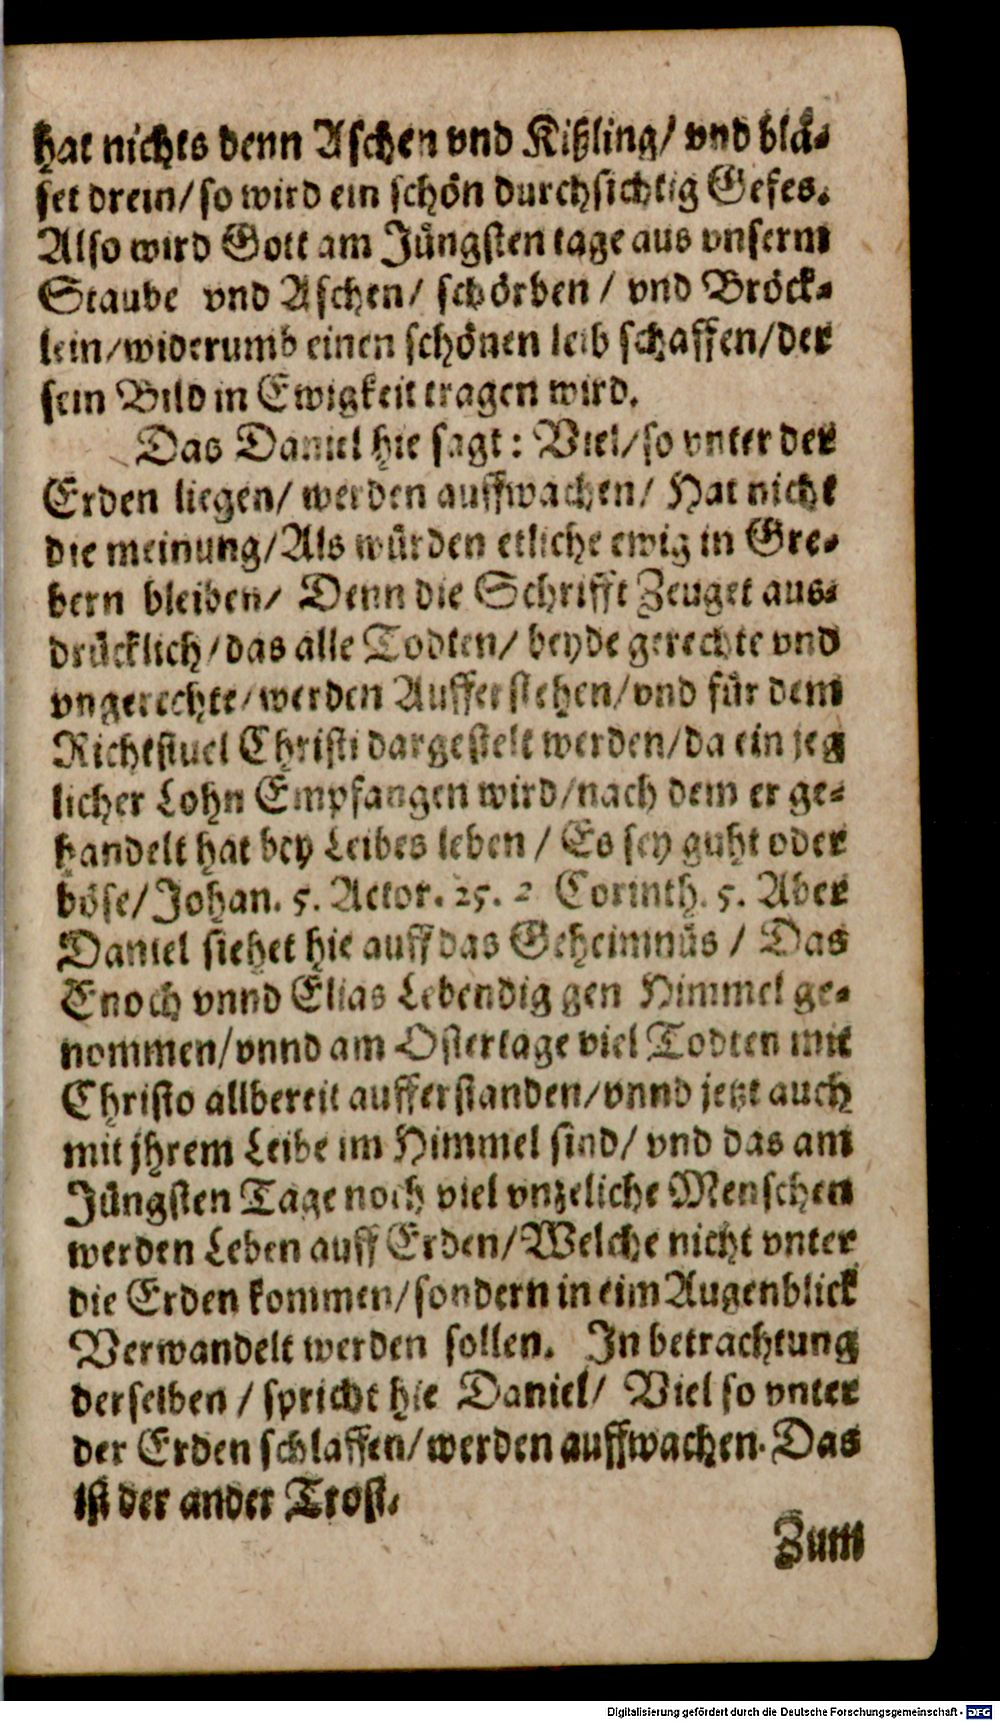 hat nichts denn Aschen vnd Kißling/ vnd blå-
set drein/ so wird ein schön durchsichtig Gefes.
Also wird Gott am Jüngsten tage aus vnserm
Staube vnd Aschen/ schörben / vnd Bröck-
lein/ widerumb einen schönen leib schaffen/ der
sein Bild in Ewigkeit tragen wird.
Das Daniel hie sagt: Viel/ so vnter der
Erden liegen/ werden auffwachen/ Hat nicht
die meinung/ Als würden etliche ewig in Gre-
bern bleiben/ Denn die Schrifft Zeuget aus-
drücklich/ das alle Todten/ beyde gerechte vnd
vngerechte/ werden Aufferstehen/ vnd für dem
Richtstuel Christi dargestelt werden/ da ein jeg
licher Lohn Empfangen wird/ nach dem er ge-
handelt hat bey Leibes leben / Es sey guht oder
böse/ Johan. 5. Actor. 25. 2 Corinth. 5. Aber
Daniel siehet hie auff das Geheimnüs / Das
Enoch vnnd Elias Lebendig gen Himmel ge-
nommen/ vnnd am Ostertage viel Todten mit
Christo allbereit aufferstanden/ vnnd jetzt auch
mit jhrem Leibe im Himmel sind/ vnd das am
Jüngsten Tage noch viel vnzeliche Menschen
werden Leben auff Erden/ Welche nicht vnter
die Erden kommen/ sondern in eim Augenblick
Verwandelt werden sollen. In betrachtung
derselben / spricht hie Daniel/ Viel so vnter
der Erden schlaffen/ werden auffwachen. Das
ist der ander Trost.
Zum
Digitalisierung gefördert durch die Deutsche Forschungsgemeinschaft - DFG